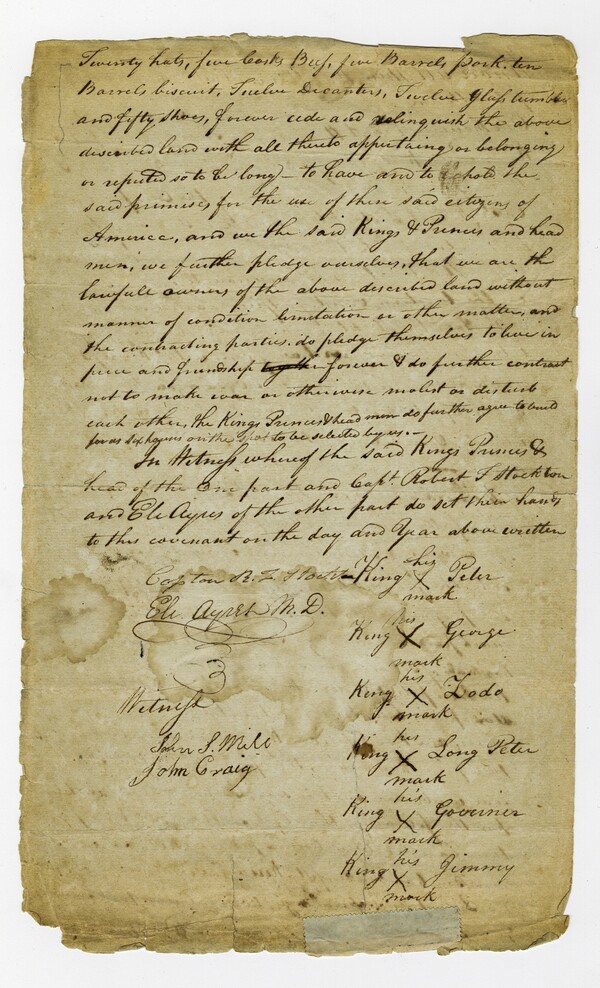 Twenty hats, five Casks Beef, five Barrels pork, ten
Barrels biscuit, Twelve Decanters, Twelve Glass tumblers
and fifty shoes, forever cede and relinquish the above
described land with all thereto appertaing or belonging
or reputed so to be long – to have and to hold the
said premises, for the use of these said citizens of
America, and we the said Kings & Princes and head
men, we further pledge ourselves, that we are the
lawfull owners of the above described land without
manner of condition limitation or other matter, and
the contracting parties. do pledge themselves to live in
peace and friendship together forever & do further contract
not to make war or otherwise molist or disturb
each other, the Kings Princes & head men do further agree to build
for us six houses on the spot to be selected by us. –
In Witness whereof the said Kings Princes &
head of the one part and Capt Robert F Stockton
and Eli Ayres of the other part do set their hands
to this covenant on the day and Year above written
Captan R. F. Stockton
Eli Ayres M. D.
Witness
John S. Mill
John Craig
his
King X Peter
mark
his
King X George
mark
his
King X Zodo
mark
his
King X Long Peter
mark
his
King X Governer
mark
his
King X Jimmy
mark